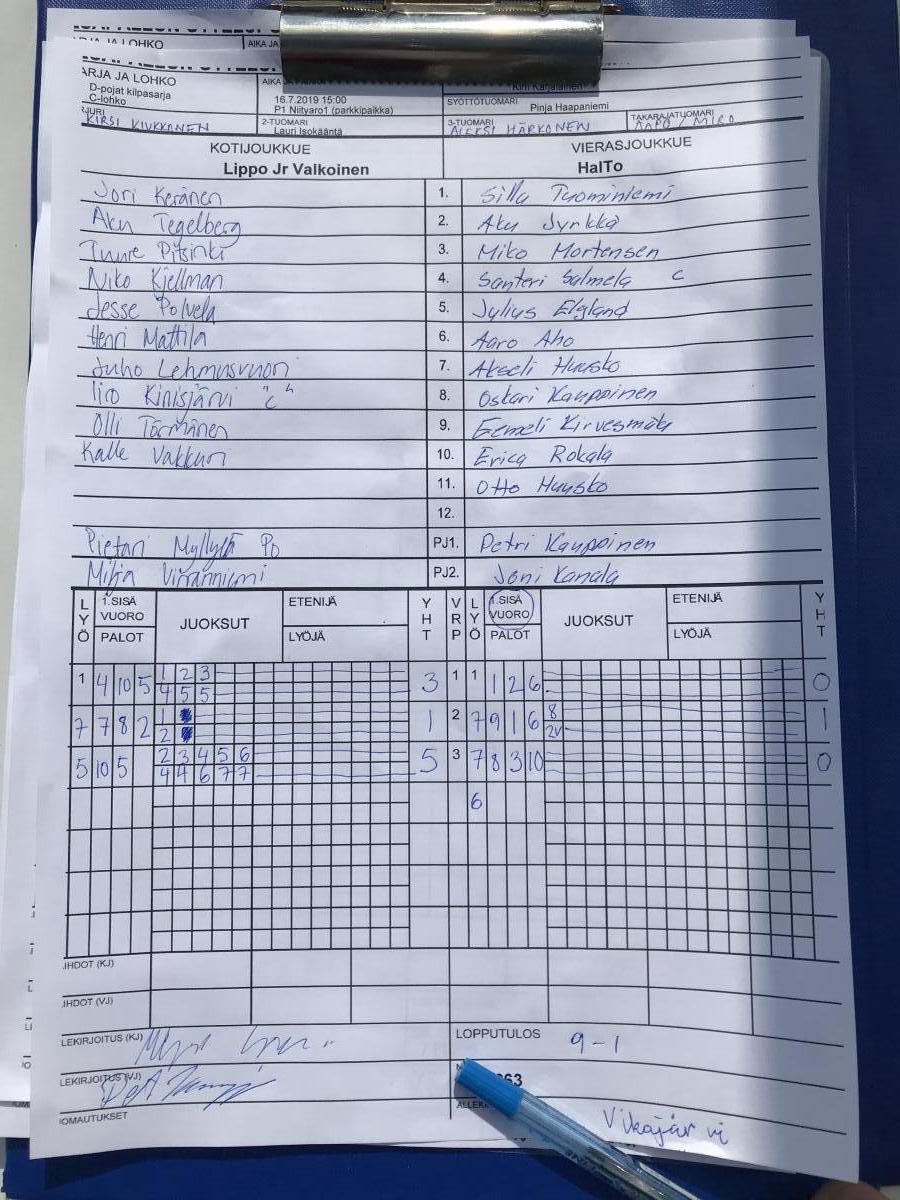 ARJA JA LOHKO
AIKA JA
ARJA JA LOHKO
D-pojat kilpasarja
C-lohko
16.7.2019 15:00
P1 Niityaro1 (parkkipaikka)
Kim Karjalainen
SYÖTTÖTUOMARI
Pinja Haapaniemi
KIRSI KIUKKONEN
2-TUOMARI
Lauri Isokääntä
3-TUOMARI
ALEKSI HÄRKÖNEN
TAKARAJATUOMARI
AAPO / MIRO
KOTIJOUKKUE
Lippo Jr Valkoinen
VIERASJOUKKUE
HalTo
Jori Keränen 1. Silla Tuominiemi
Aku Tegelberg 2. Aku Jyrkkä
Tuure Pitsinki 3. Miko Mortensen
Niko Kjellman 4. Santeri Salmela C
Jesse Polvela 5. Julius Elgland
Henri Mattila 6. Aaro Aho
Juho Lehmusvuori 7. Akseli Huusko
Iiro Kinisjärvi "C" 8. Oskari Kauppinen
Olli Törmänen 9. Eemeli Kirvesmäki
Kalle Vakkuri 10. Erica Rokala
11. Otto Huusko
12.
Pietari Myllylä PO PJ1. Petri Kauppinen
Milja Virranniemi PJ2. Joni Kanala
LYÖ 1.SISÄ VUORO PALOT JUOKSUT ETENIJÄ LYÖJÄ YHT VRP LYÖ 1.SISÄ VUORO PALOT JUOKSUT ETENIJÄ LYÖJÄ YHT
1 4 10 5 1 2 3 3 1 1 1 2 6 0
4 5 5
7 7 8 2 1 1 2 7 9 1 6 8 1
2 2V
5 10 5 2 3 4 5 6 5 3 7 8 3 10 0
4 4 6 7 7
6
LEKIRJOITUS (KJ)
LOPPUTULOS 9-1
LEKIRJOITUS (VJ)
63
Vikajärvi